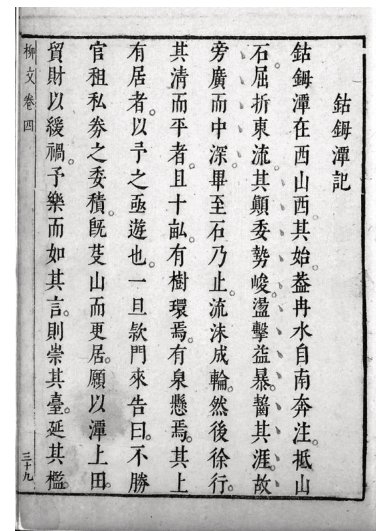 鈷鉧潭記
鈷鉧潭在西山西。其始葢冉水自南奔注。抵山
石。屈折東流。其顛委勢峻。盪擊益暴。齧其涯。故
旁廣而中深。畢至石乃止。流沫成輪。然後徐行。
其清而平者。且十畝。有樹環焉。有泉懸焉。其上
有居者。以予之亟遊也。一旦款門來告曰。不勝
官租私券之委積。旣芟山而更居。願以潭上田。
貿財以緩禍。予樂而如其言。則崇其臺。延其檻。
柳文卷四
三十九